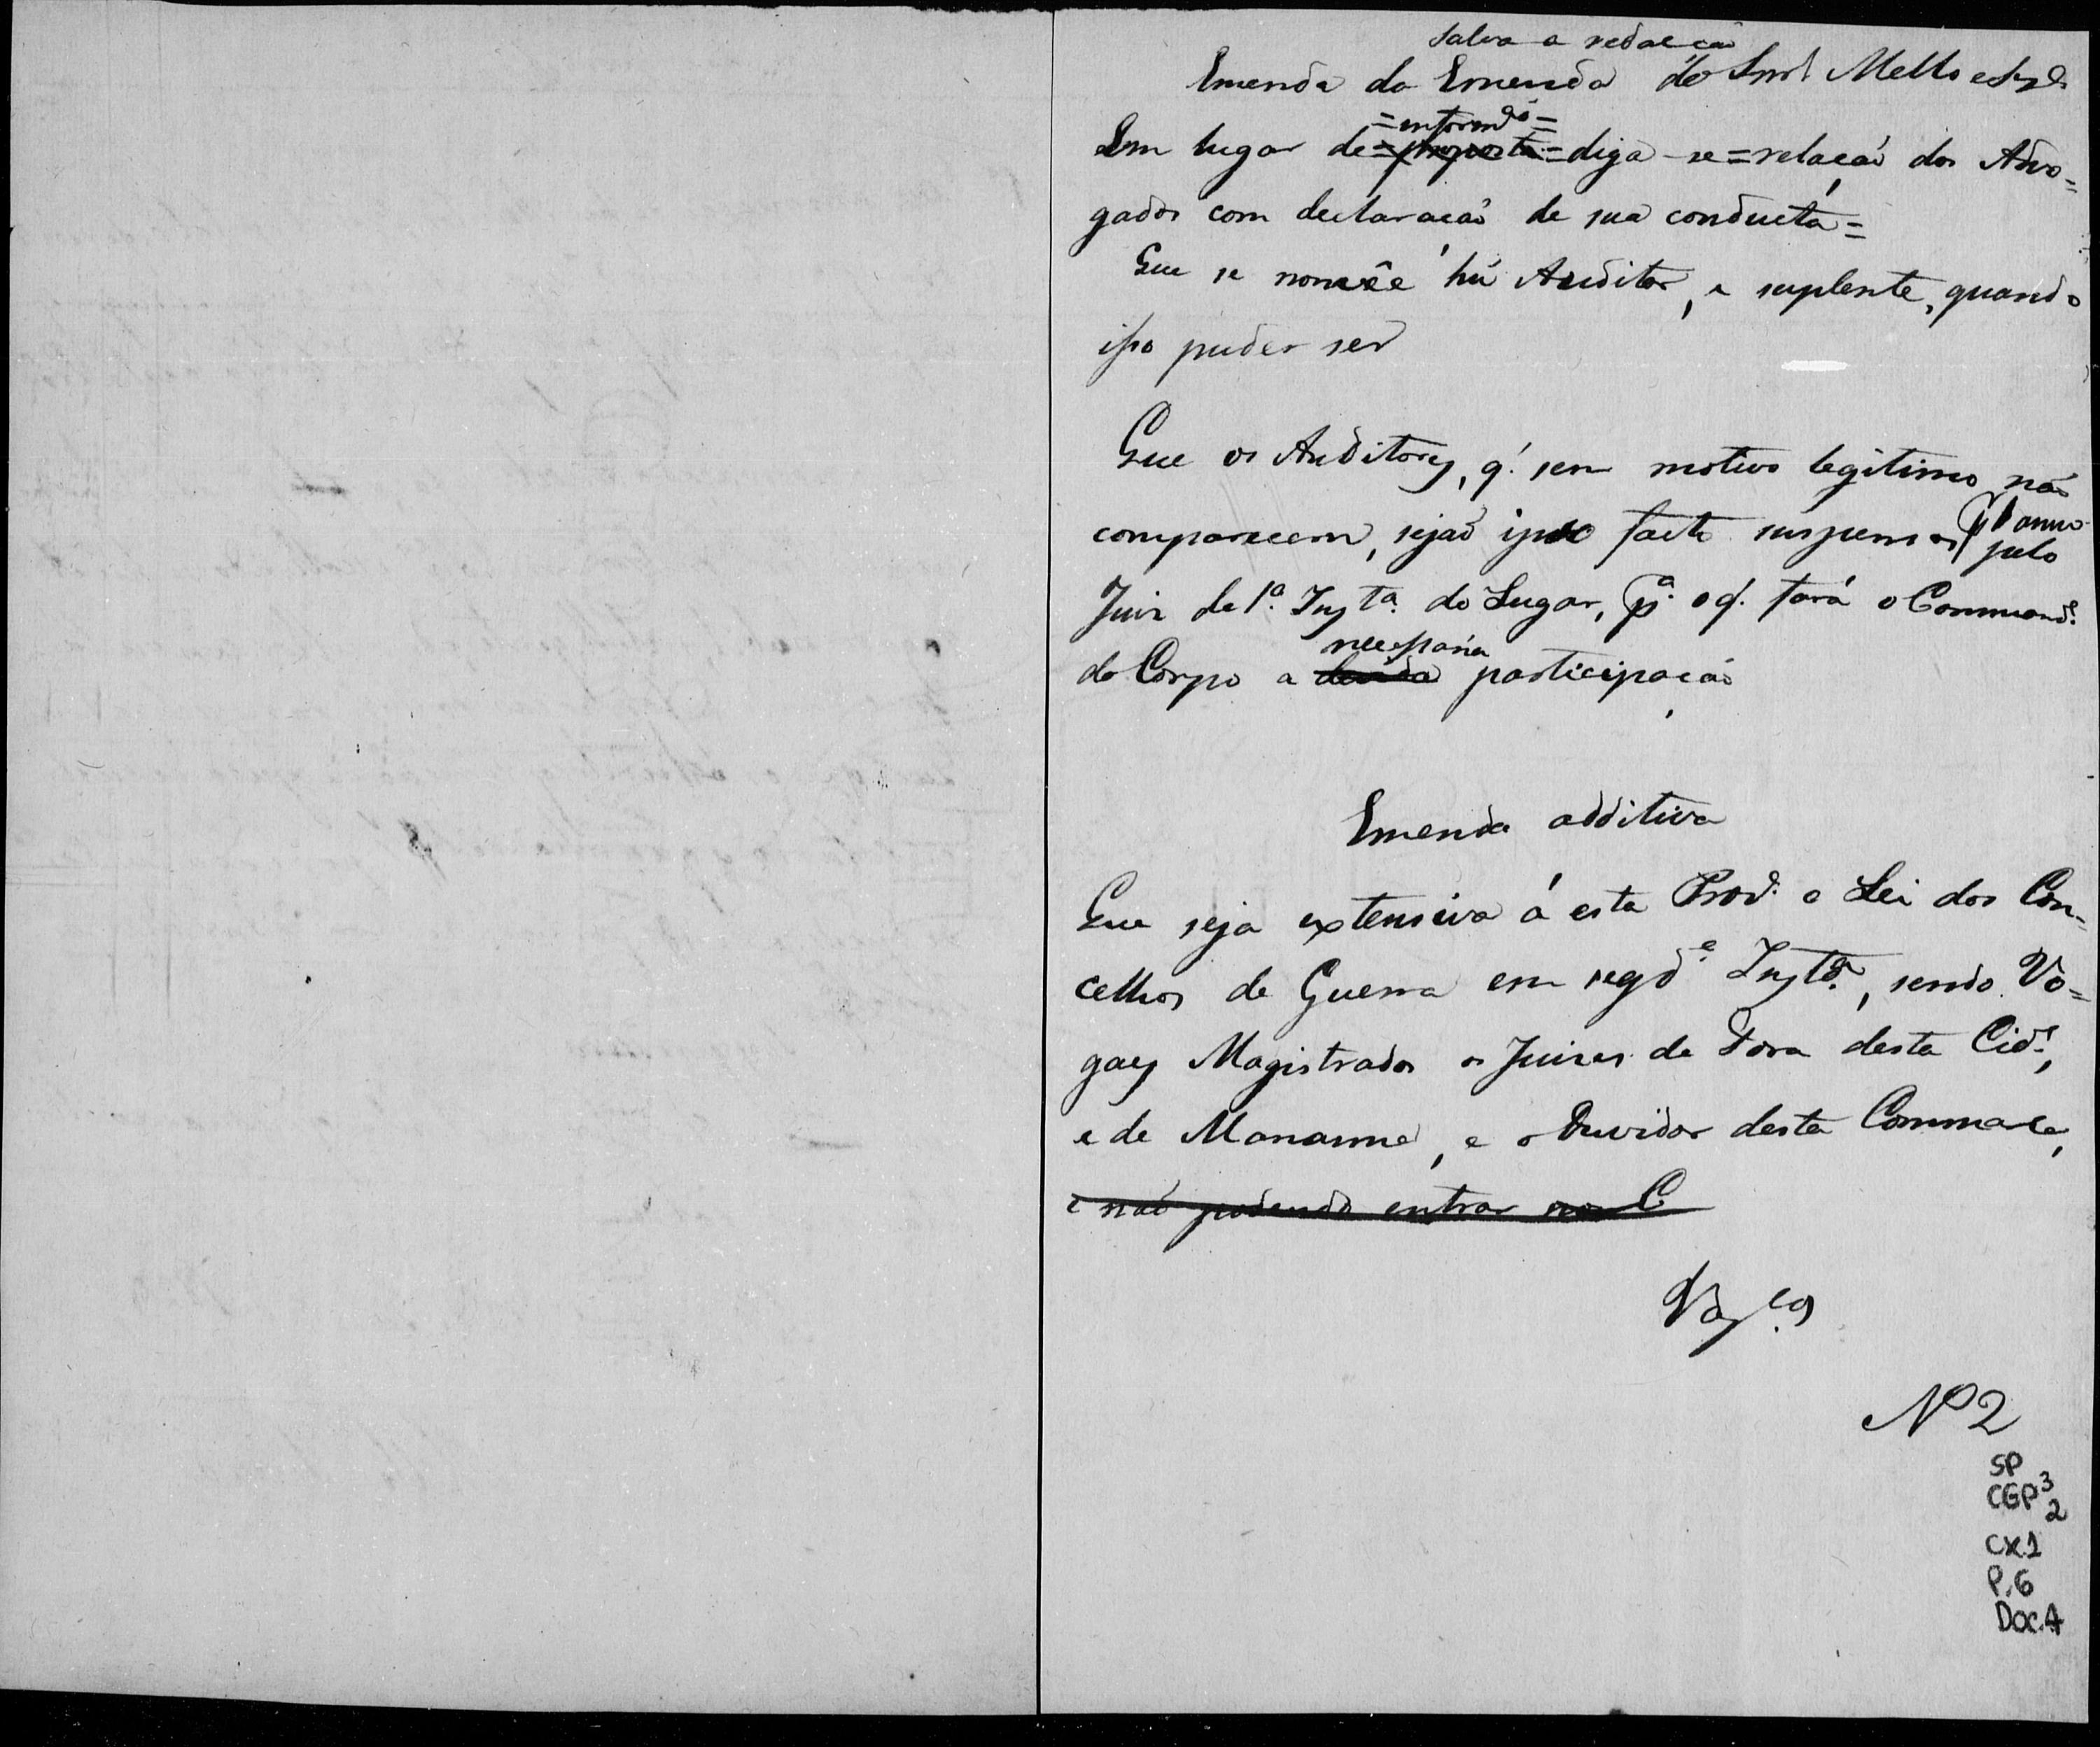 salva a redacção
Emenda da Emenda do Snr. Mello e Sza
=informação=
Em lugar de =proposta= diga-se = relação dos Advo=
gados com declaração de sua conducta=
Que se nomêe hú Auditor, e suplente, quando
isso puder ser
Que os Auditores, q. sem motivo legitimo não
comparecem, sejaõ ipso facto suspensos p. 1 anno
pelo
Juiz de 1.ª Insta. do Lugar, pª. o q. fará o Commande.
necessaria
do Corpo a devida participação
Emenda additiva
Que seja extensiva á esta Prov.ª a Lei dos Con=
celhos de Guerra em segdª. Instª., sendo Vo=
gaes Magistrados os Juizes de Fora desta Cid.e,
e de Marianna, e o Ouvidor desta Commarca,
e naõ podendo entrar no C
Vas.cos
Nº 2
SP
CGP 3
2
CX.1
P.6
DOC.4